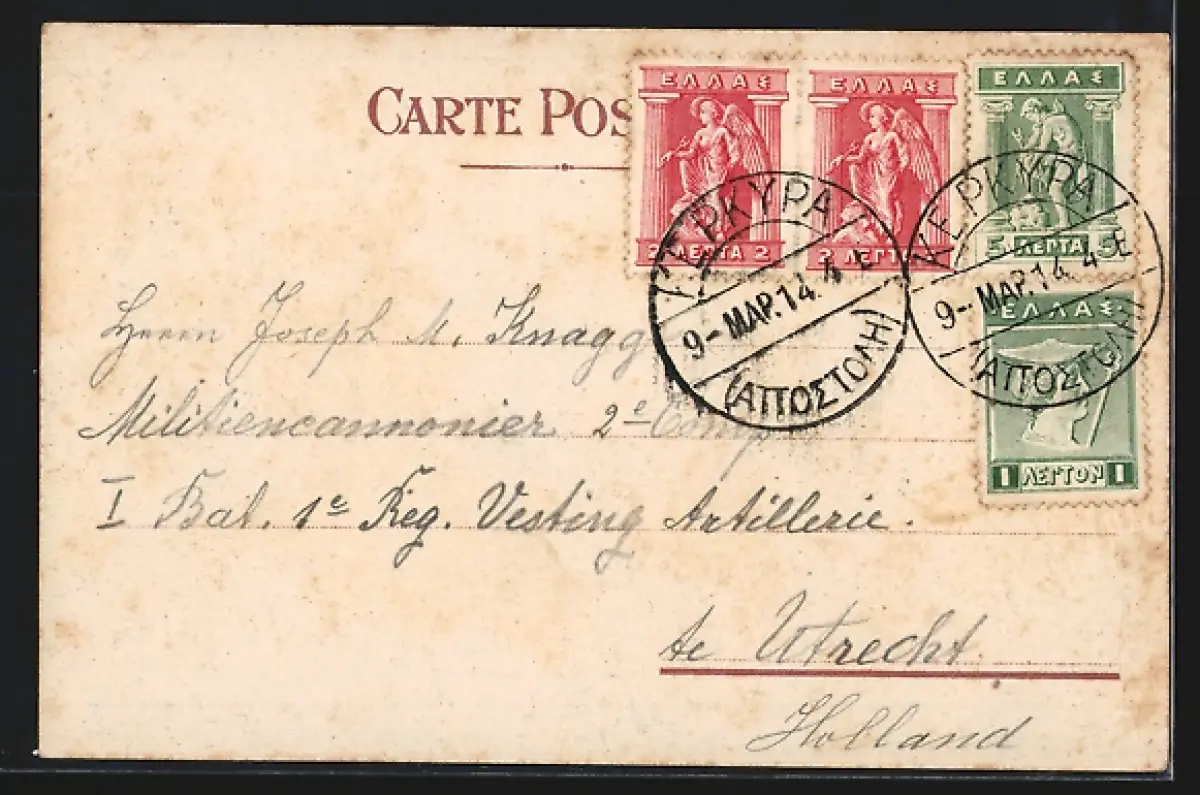 CARTE POS
ΕΛΛΑΣ
2 ΛΕΠΤΑ 2
ΕΛΛΑΣ
2 ΛΕΠΤ
ΕΛΛΑΣ
5 ΛΕΠΤΑ 5
ΕΛΛΑΣ
1 ΛΕΠΤΟΝ 1
ΚΕΡΚΥΡΑ
9- ΜΑΡ.14. 4 Ε
(ΑΠΟΣΤΟΛΗ)
ΚΕΡΚΥΡΑ
9- ΜΑΡ.14 4 Ε
(ΑΠΟΣΤΟΛΗ)
Herrn Joseph M. Knagg
Militiencannonier 2e Comp
I Bat. 1e Reg. Vesting Artillerie.
te Utrecht
Holland